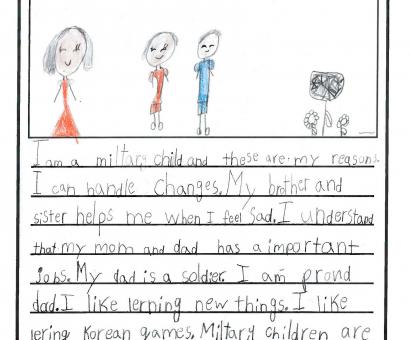 I am a miltary child and these are my reasons.
I can handle changes. My brother and
sister helps me when I feel sad. I understand
that my mom and dad has a important
jobs. My dad is a soldier. I am proud
dad. I like lerning new things. I like
lering Korean games. Miltary children are